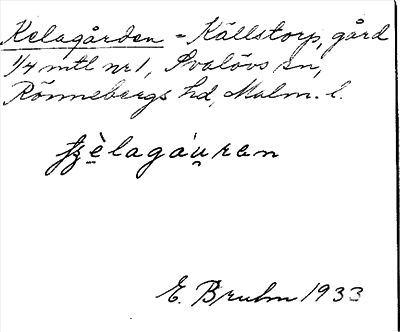 Kelagården - Källstorp, gård
1/4 mtl nr 1, Svalövs sn,
Rönnebergs hd, Malm. l.
E. Bruhn 1933